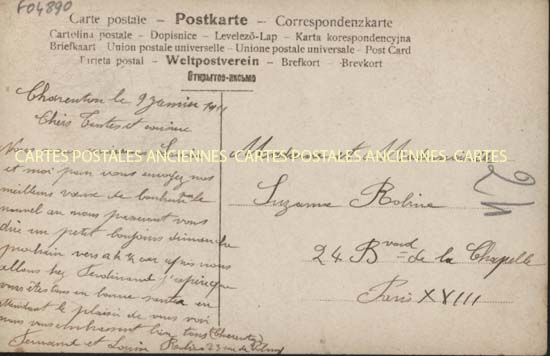 F04890
Carte postale – Postkarte – Correspondenzkarte
Cartolina postale – Dopisnice – Levelező-Lap – Karta korespondencyjna
Briefkaart - Union postale universelle - Unione postale universale - Post Card
Tarjeta postal – Weltpostverein – Brefkort – Brevkort
Открытое-письмо
Charenton le 9 janvier 1911
Chers Tantes et cousine
CARTES POSTALES ANCIENNES CARTES POSTALES ANCIENNES CARTES
et moi pour vous envoyez nos
meilleurs vœux de bonheur
nouvel an nous pouvant vous
dire un petit bonjour dimanche
prochain vers 2 h ½ car après nous
allons chez Ferdinand j'espère que
vous êtes en bonne santé en
attendant le plaisir de vous voir
nous vous embrassent bien tous (Charenton)
Fernand et Louise Robine 23 rue de
Madame et
Suzanne Robine
24 Bvard de la Chapelle
Paris XVIII